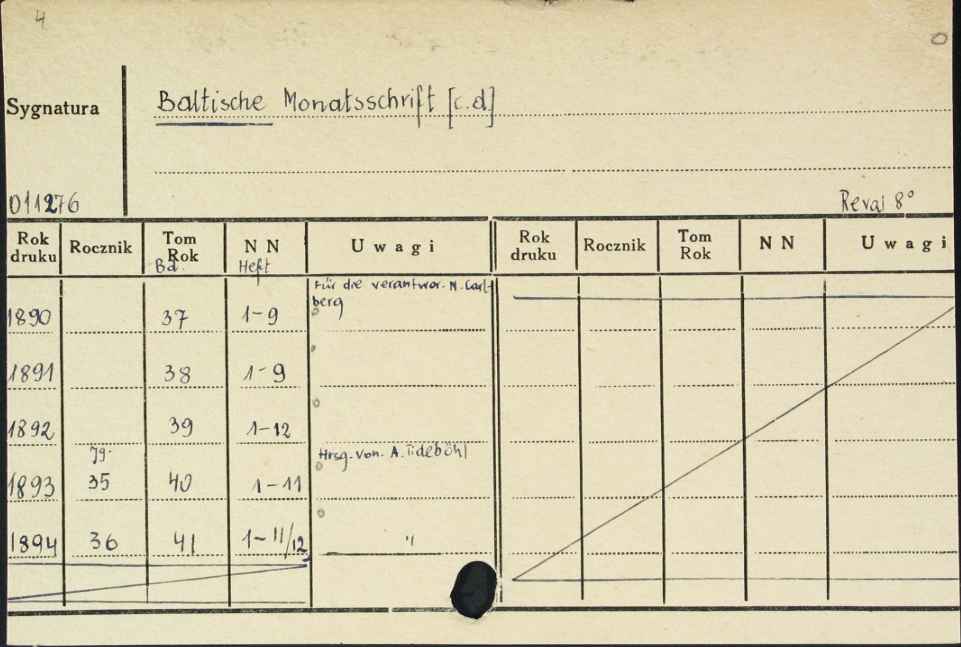 4
0
Sygnatura
Baltische Monatsschrift [c.d]
011276
Reval 8°
Rok druku Rocznik Tom Rok N N Uwagi Rok druku Rocznik Tom Rok N N Uwagi
Bd. Heft
Für die verantwor. N. Carl-
berg
1890 37 1-9
1891 38 1-9
1892 39 1-12
Jg. Hrsg. von. A. Tideböhl
1893 35 40 1-11
1894 36 41 1-11/12 "